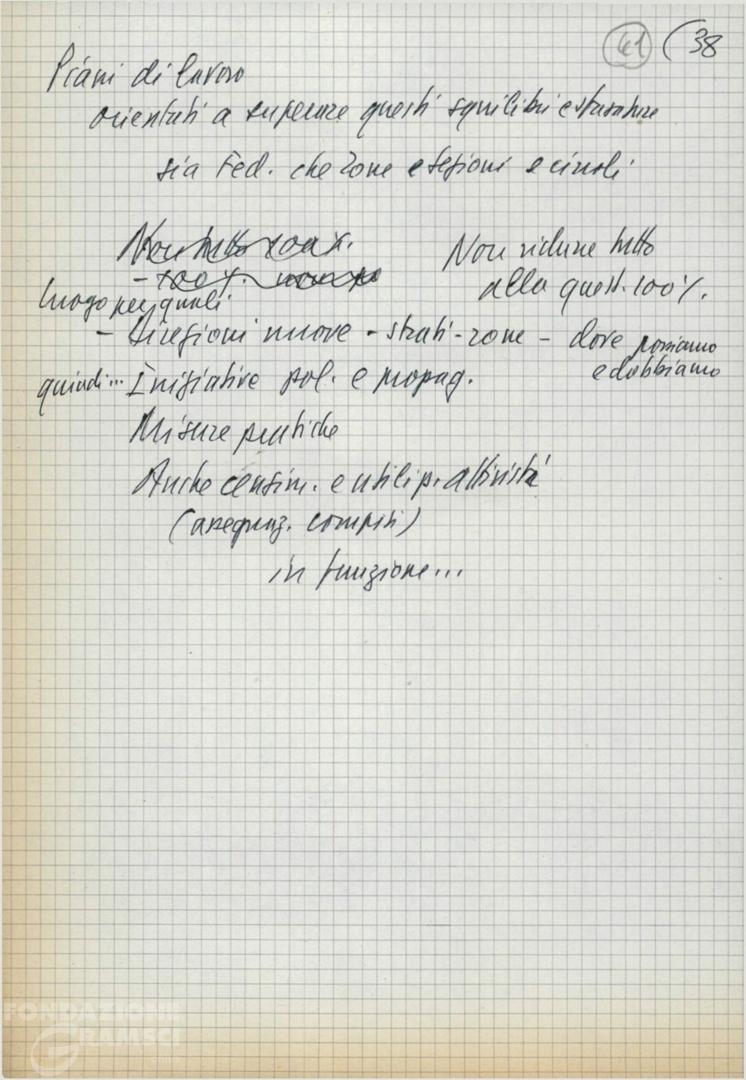 41 (38
Piani di lavoro
orientati a superare questi squilibri e storture
sia Fed. che Zone e sezioni e circoli
Non tutto 100%.
Non ridurre tutto
- 100%.
alla quest. 100%.
luogo per quali
- direzioni nuove - strati - zone - dove possiamo
e dobbiamo
quindi... Iniziative pol. e propag.
Misure pratiche
Anche censim. e utiliz. attivisti
(assegnaz. compiti)
in funzione...
FONDAZIONE
GRAMSCI